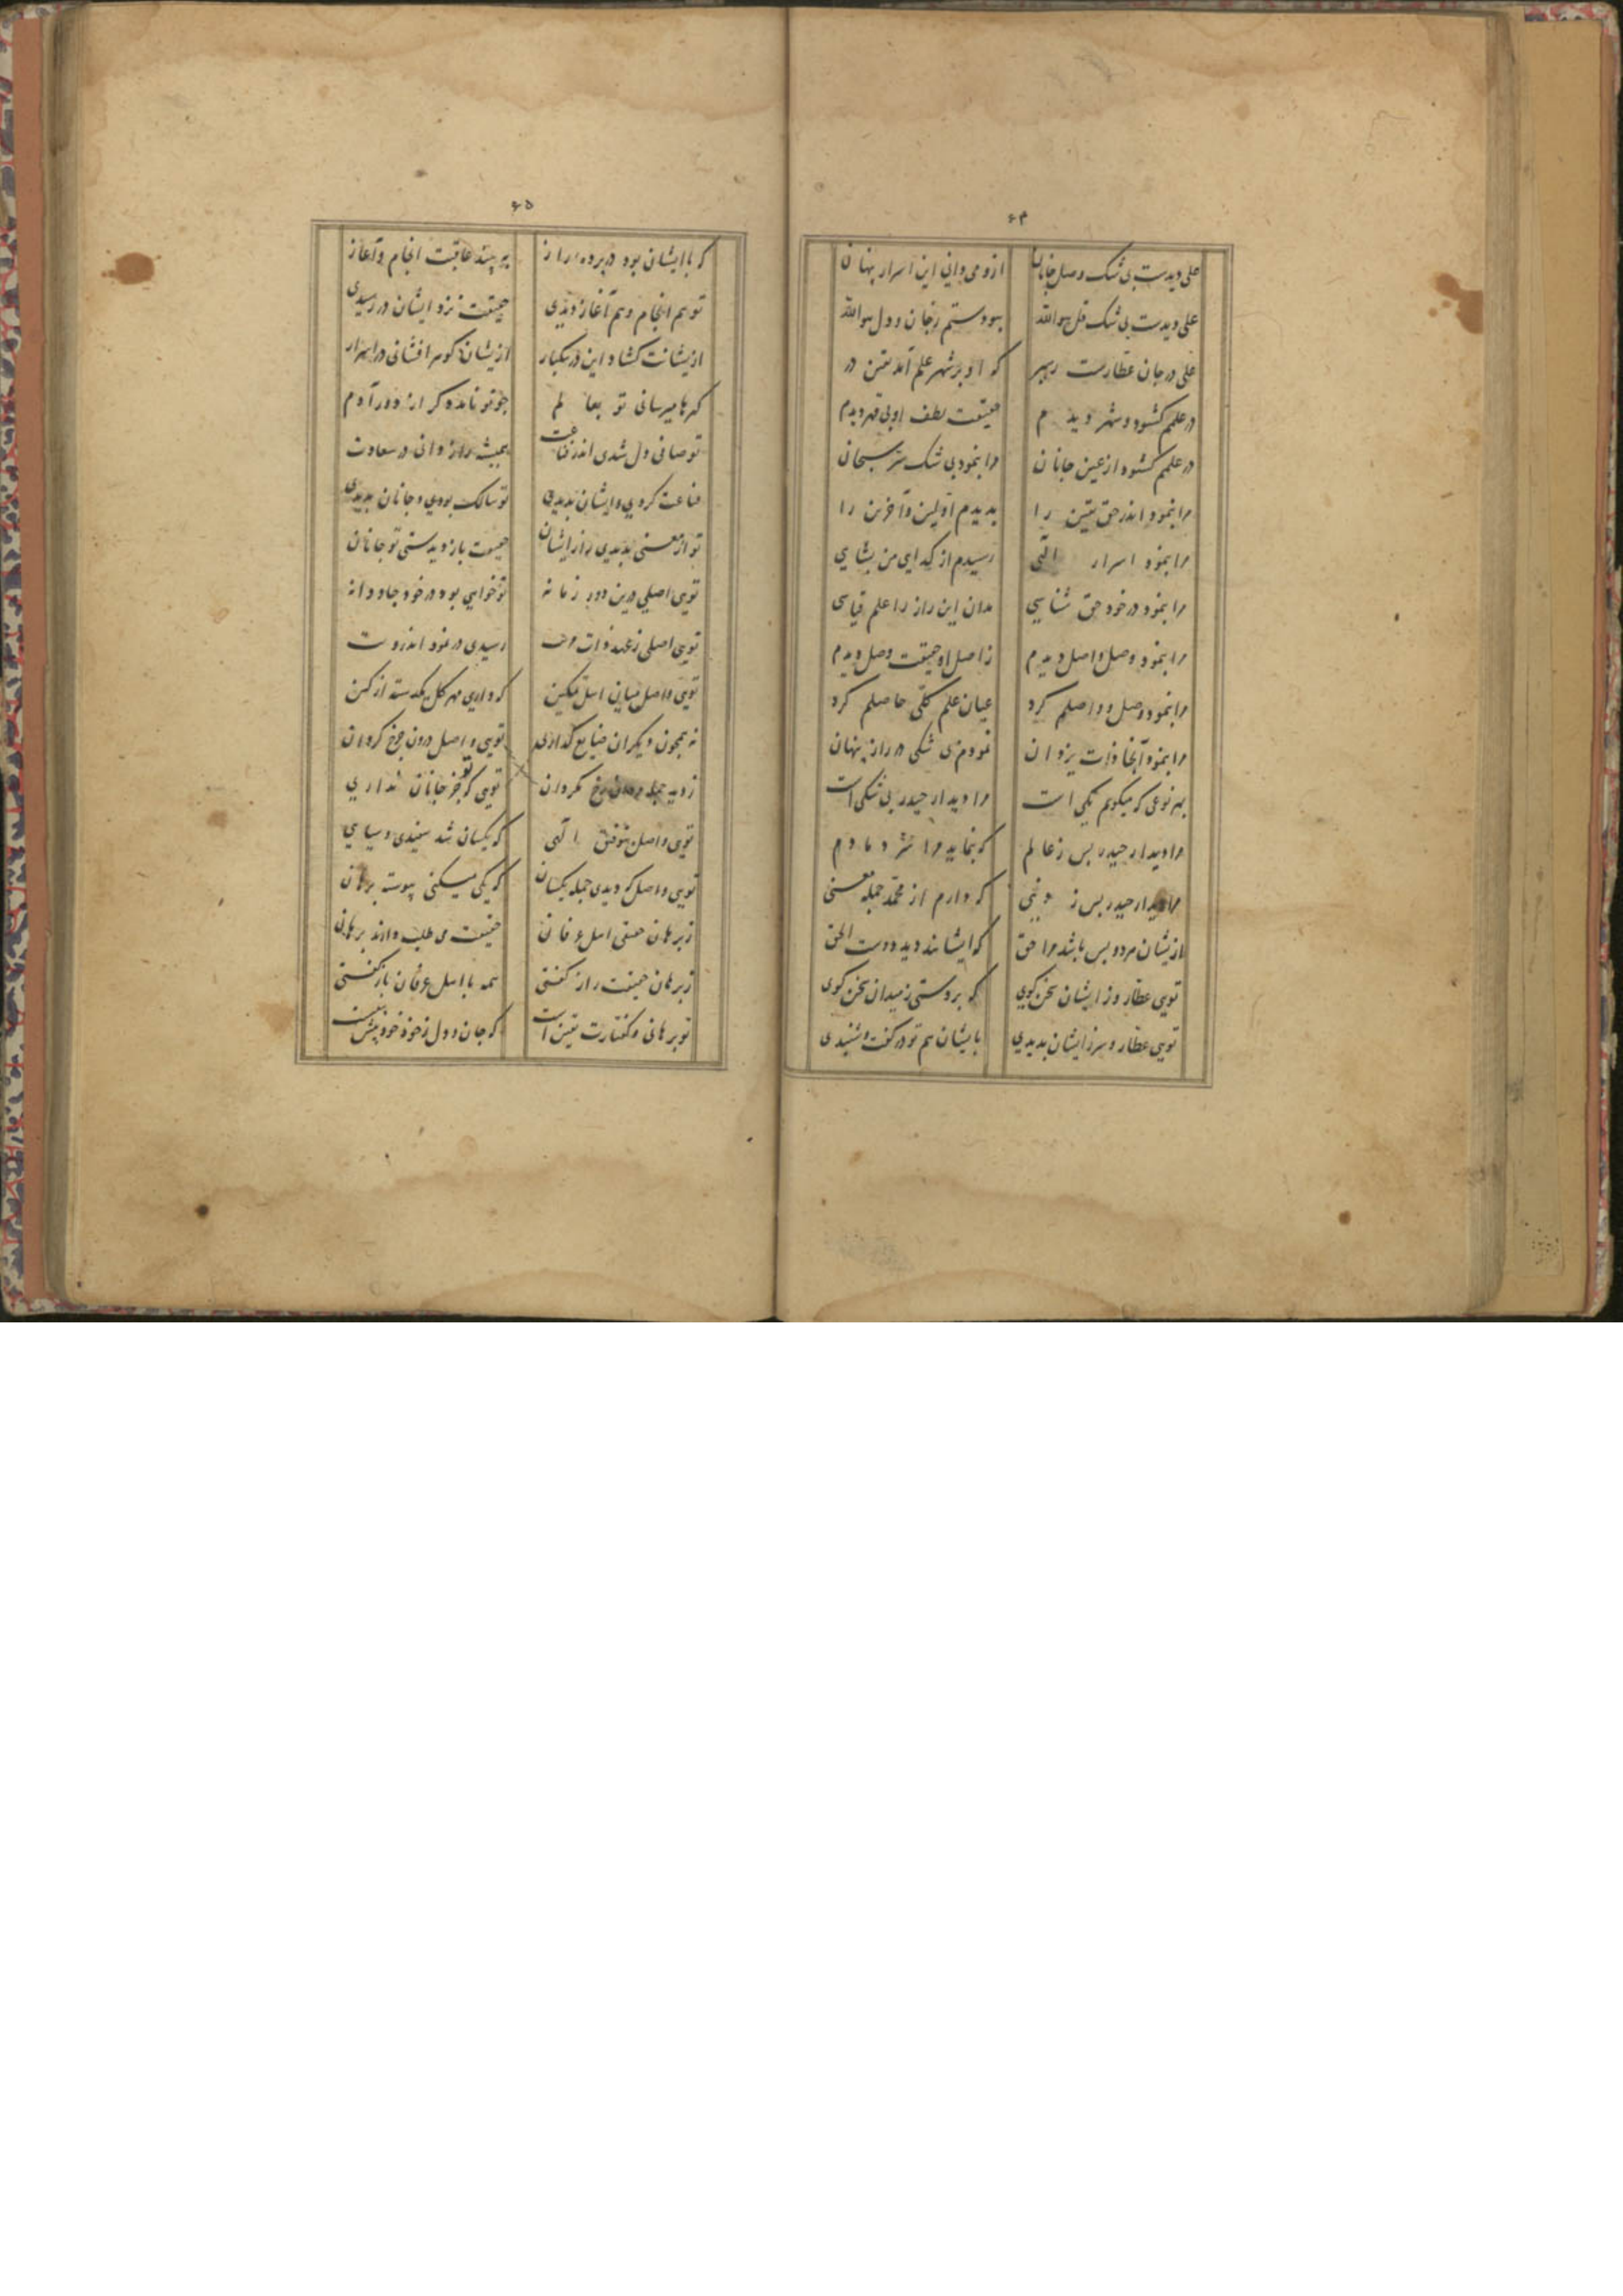 ۶۴
علی دیدست بی شک وصل جانان ازو می دانی این اسرار پنهان
علی دیدست بی شک قل هو الله بهودستم زجان و دل هو الله
علی در جان عطارست رهبر که او بر شهر علم آمد یقین در
در علمم کشود و شهر دیدم حقیقت لطف او بی قهر دیدم
در علمم کشود از عین جانان مرا بنمود بی شک سر سبحان
مرا بنمود اندر حق یقین را بدیدم اولین و آخرین را
مرا بنمود اسرار الهی رسیدم از کدایی من بشاهی
مرا بنمود در خود حق شناسی مدان این راز را علم قیاسی
مرا بنمود وصل و اصل دیدم ز اصل او حقیقت وصل دیدم
مرا بنمود وصل و واصلم کرد عیان علم کلی حاصلم کرد
مرا بنمود آنجا ذات یزدان نمودم بی شکی در راز پنهان
بهر نوعی که میکویم یکی است مرا دیدار حیدر بی شکی است
مرا دیدار حیدر بس ز عالم که بنماید مرا سر دمادم
مرا دیدار حیدر بس ز دنیی که دارم از محمد جمله معنی
ازیشان مردو بس باشد مرا حق که ایشانند دید دوست الحق
تویی عطار وز ایشان سخن کوی که بردستی ز میدان سخن کوی
تویی عطار و سر ز ایشان بدیدی بایشان هم تو در کفت و شنیدی
۶۵
که با ایشان بود در پرده راز به بیند عاقبت انجام و آغاز
تو هم انجام و هم آغاز دیدی حقیقت نزد ایشان در رسیدی
ازیشانت کشاد این در بیکبار ازیشان کوهر افشانی در اسرار
کهرها میرسانی تو بعالم چو تو نامد دکر از دور آدم
تو صافی دل شدی اندر قناعت همیشه راز دانی در سعادت
قناعت کردی و ایشان بدیدی تو سالک بودی و جانان بدیدی
تو از معنی بدیدی راز ایشان حقیقت باز دیدستی تو جانان
تویی اصلی درین دور زمانه تو خواهی بود در خود جاودانه
تویی اصلی ز عهد ذات رسیدی در نمود اندر
تویی واصل میان اهل تمکین که داری مهر کل یکدسته از کین
نه همچون دیکران ضایع کذاری تویی واصل درون چرخ کردان
ز دید جمله رخ مکردان تویی کو جز جانان تو نداری
تویی واصل بتوفیق الهی که یکسان شد سفیدی و سیاهی
تویی واصل که دیدی جمله یکسان که یکی میکنی پیوسته برهان
ز برهان حقیقی اهل عرفان حقیقت می طلب دارند برهان
ز برهان حقیقت راز کفتی همه با اهل عرفان باز کفتی
تو برهانی و کفتارت یقین است که جان و دل ز خود خود پیش